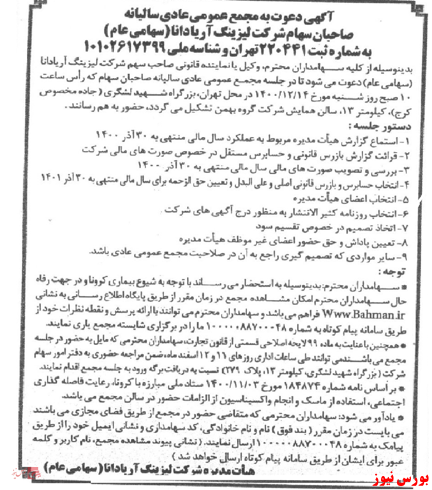 آگهی دعوت به مجمع عمومی عادی سالیانه
صاحبان سهام شرکت لیزینگ آریادانا (سهامی عام)
به شماره ثبت ۲۲۰۴۴۱ تهران و شناسه ملی ۱۰۱۰۲۶۱۷۳۹۹
بدینوسیله از کلیه سهامداران محترم، وکیل یا نماینده قانونی صاحب سهم شرکت لیزینگ آریادانا
(سهامی عام) دعوت می شود تا در جلسه مجمع عمومی عادی سالیانه صاحبان سهام که رأس ساعت
۱۰ صبح روز شنبه مورخ ۱۴۰۰/۱۲/۱۴ در محل تهران، بزرگراه شهید لشگری (جاده مخصوص
کرج)، کیلومتر ۱۳، سالن همایش شرکت گروه بهمن تشکیل می گردد، حضور به هم رسانند.
دستور جلسه :
۱- استماع گزارش هیأت مدیره مربوط به عملکرد سال مالی منتهی به ۳۰ آذر ۱۴۰۰
۲- قرائت گزارش بازرس قانونی و حسابرس مستقل در خصوص صورت های مالی شرکت
۳- بررسی و تصویب صورت های مالی سال مالی منتهی به ۳۰ آذر ۱۴۰۰
۴- انتخاب حسابرس و بازرس قانونی اصلی و علی البدل و تعیین حق الزحمه برای سال مالی منتهی به ۳۰ آذر ۱۴۰۱
۵- انتخاب اعضای هیأت مدیره
۶- انتخاب روزنامه کثیر الانتشار به منظور درج آگهی های شرکت
۷- اتخاذ تصمیم در خصوص تقسیم سود
۸- تعیین پاداش و حق حضور اعضای غیر موظف هیأت مدیره
۹- سایر مواردی که تصمیم گیری راجع به آن در صلاحیت مجمع عمومی عادی باشد.
توجه :
سهامداران محترم: بدینوسیله به استحضار می رساند با توجه به شیوع بیماری کرونا و در جهت رفاه
حال سهامداران محترم امکان مشاهده مجمع در زمان مقرر از طریق پایگاه اطلاع رسانی به نشانی
Www.Bahman.ir فراهم می باشد و سهامداران محترم می توانند با ارائه پرسش و نقطه نظرات خود از
طریق سامانه پیام کوتاه به شماره ۱۰۰۰۰۰۸۸۷۰۰۰۴۸ ما را در برگزاری شایسته مجمع یاری نمایند.
همچنین با عنایت به ماده ۹۹ لایحه اصلاحی قسمتی از قانون تجارت، سهامداران محترمی که مایل به حضور در جلسه
مجمع می باشند می توانند طی ساعات اداری روزهای ۱۱ و ۱۲ اسفند ماه، ضمن مراجعه حضوری به دفتر امور سهام
شرکت (بزرگراه شهید لشگری، کیلومتر ۱۳، پلاک ۲۷۹) نسبت به دریافت برگه ورود به جلسه مجمع اقدام نمایند.
بر اساس نامه شماره ۱۸۴۸۷۴ مورخ ۱۴۰۰/۱۱/۰۳ ستاد ملی مبارزه با کرونا، رعایت فاصله گذاری
اجتماعی، استفاده از ماسک و انجام واکسیناسیون از الزامات حضور در سالن مجمع می باشد.
یادآور می شود: سهامداران محترمی که متقاضی حضور در مجمع از طریق فضای مجازی می باشند
می بایست در زمان مقرر (بند فوق) نام و نام خانوادگی، کد سهامداری و نشانی ایمیل خود را از طریق
پیامک به شماره ۱۰۰۰۰۰۸۸۷۰۰۰۴۸ ارسال نمایند. (نشانی پیوند مشاهده مجمع، نام کاربر و کلمه
عبور برای ایشان از طریق سامانه پیام کوتاه ارسال خواهد شد)
هیأت مدیره شرکت لیزینگ آریادانا (سهامی عام)
بورس نیوز